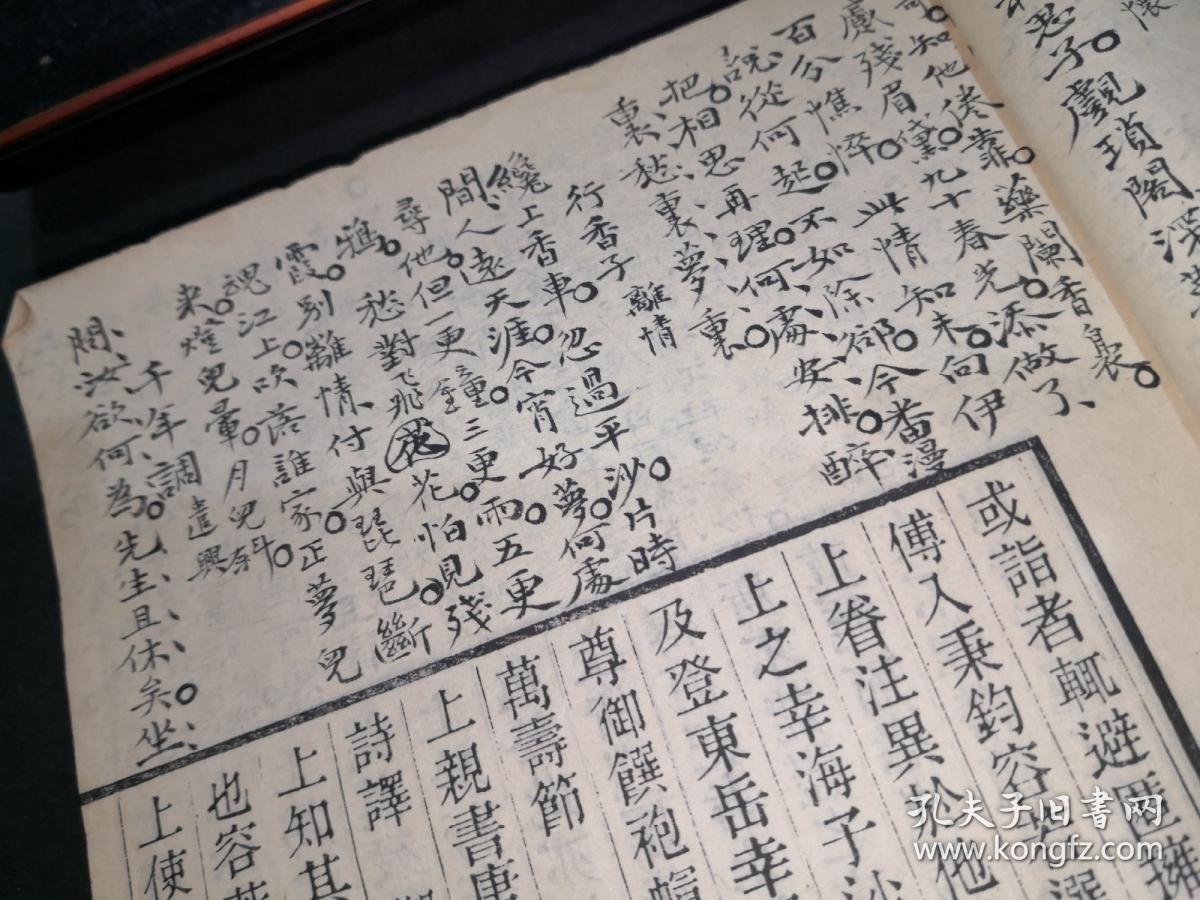 懷
忍子。覷瑣閣深
可知他倦靠。藥闌香裊。
殘眉黛。九十春光。添做了、
百分憔悴。此情知未。向伊
說。從何起。不如除卻。今番漫
把。相思再理。何處安排。醉
裏、愁裏、夢裏。
行香子 離情
纔上香車。忽過平沙。片時
間、人遠天涯。今宵好夢。何處
尋他。但一更鐘。三更雨。五更
鴉。 愁對飛花。怕見殘
霞。別離情、付與琵琶。斷
魂江上。吹落誰家。正夢兒
來。燈兒暈。月兒斜。
千年調 遣興
問、汝欲何為。先生且休矣。坐、
或詣者輒避匿擁
傅入秉鈞容若選
上眷注異於他
上之幸海子沙
及登東岳幸
尊御饌袍帽
萬壽節
上親書唐
詩譯
上知其
也容若
上使
孔夫子旧书网
www.kongfz.com